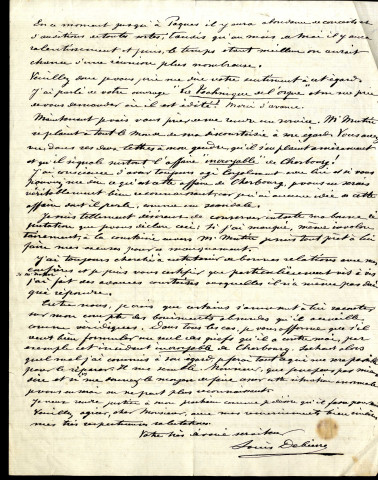 En ce moment jusqu'à Pâques il y aura abondance de concerts et
d'auditions de toutes sortes, tandis qu'au mois de Mai il y aura
ralentissement et puis, le temps étant meilleur on aurait
chance d'une réunion plus nombreuse.
Veuillez donc je vous prie me dire votre sentiment à cet égard.
J'ai parlé de votre ouvrage "La Technique de l'orgue" et on me prie
de vous demander où il est édité? Merci d'avance.
Maintenant je vais vous prier de me rendre un service. Mr Mutin
se plaint à tout le monde de ma discourtoisie à son égard. Vous avez
vu dans ses deux lettres à mon gendre qu'il s'en plaint amèrement
et qu'il signale surtout l'affaire "incroyable" de Cherbourg!
J'ai conscience d'avoir toujours agi loyalement avec lui et si vous
pouviez me dire ce qu'est cette affaire de Cherbourg, je vous en serais
véritablement bien reconnaissant, car je n'ai aucune idée de cette
affaire dont il parle, comme un scandale.
Je suis tellement désireux de conserver intacte ma bonne
réputation que je vous déclare ceci: Si j'ai manqué, même involon
tairement, à la courtoisie envers Mr Mutin je suis tout prêt à lui
faire mes excuses pour ma maladresse.
J'ai toujours cherché à entretenir de bonnes relations avec mes
confrères et je puis vous certifier que particulièrement vis à vis
de Mr Mutin j'ai fait des avances courtoises auxquelles il n'a même pas dai
gné répondre.
Entre nous, je crois que certains s'amusent à lui raconter
sur mon compte des boniments absurdes qu'il accueille
comme véridiques. Dans tous les cas, je vous affirme que s'il
veut bien formuler un seul des griefs qu'il a contre moi, par
exemple ce scandale incroyable de Cherbourg, sachant alors
quel mal j'ai commis à son égard, je ferai tout ce qui me sera possible
pour le réparer. Il me semble Monsieur, que je ne puis pas mieux
dire et si vous trouvez le moyen de faire cesser cette situation anormale
je vous en aurai on ne peut plus de reconnaissance.
Veuillez agréer, cher Monsieur, avec mes remerciements bien sincères
mes très respectueuses salutations.
Votre très dévoué serviteur
Louis Debierre